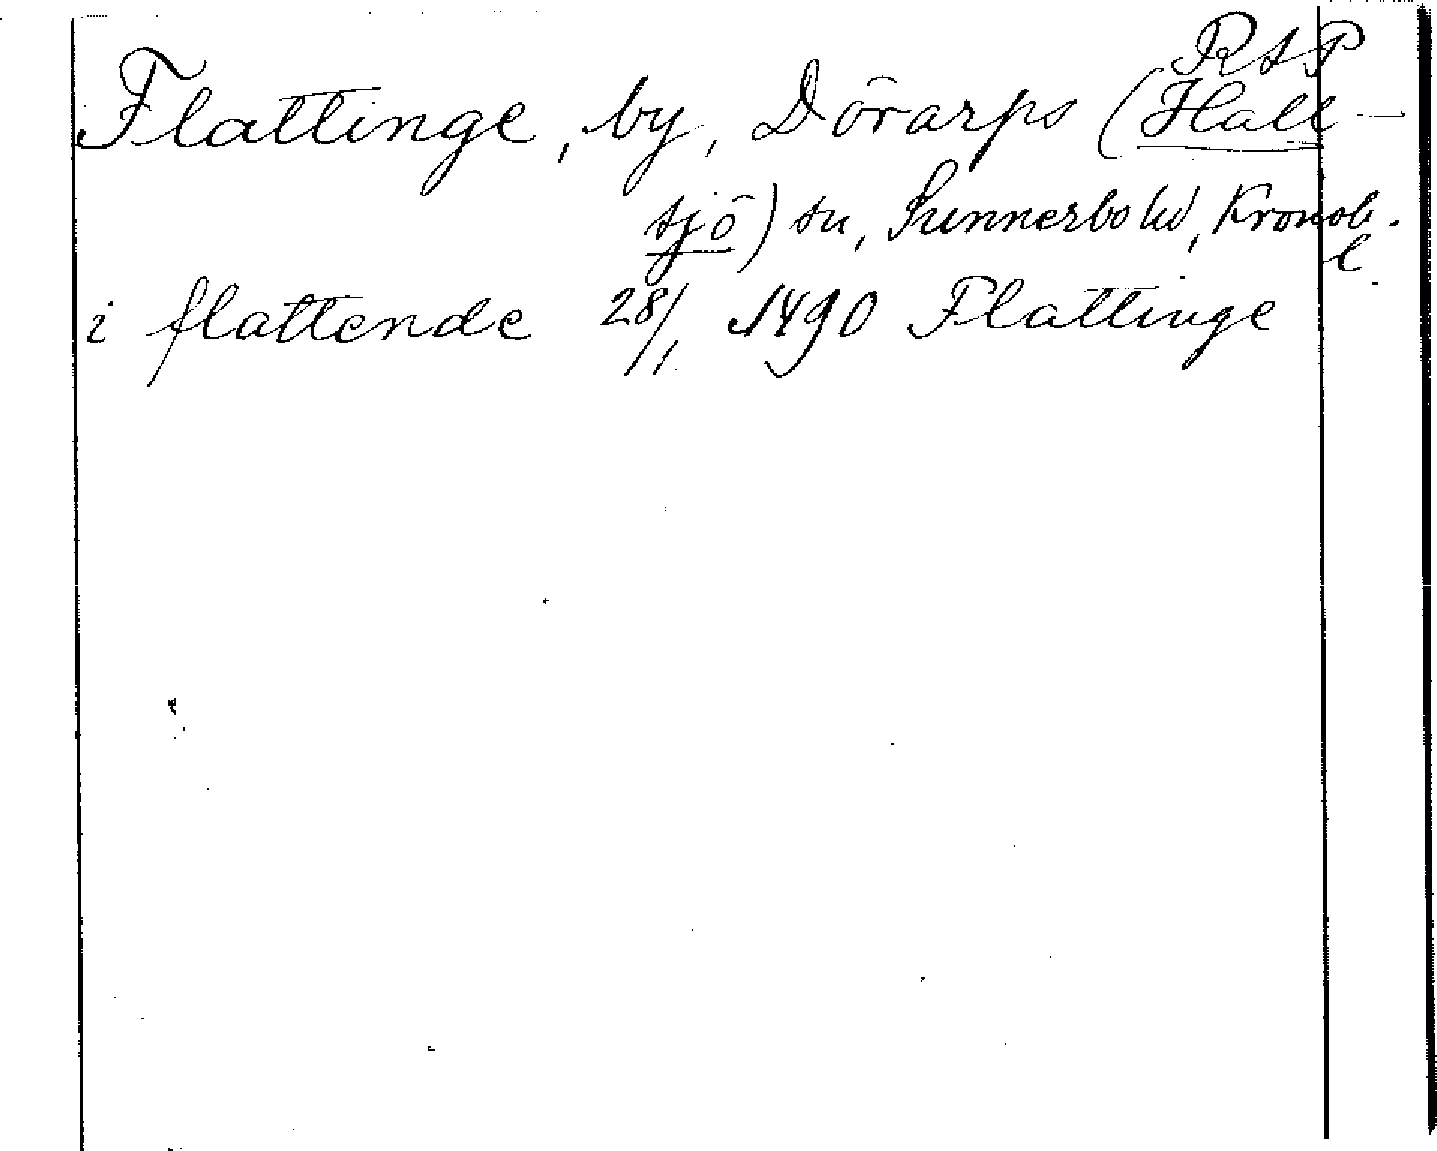 RAP
Flattinge, by, Dörarps (Hall-
sjö) sn, Sunnerbo hd, Kronob.
l.
i flattende 28/1 1490 Flattinge